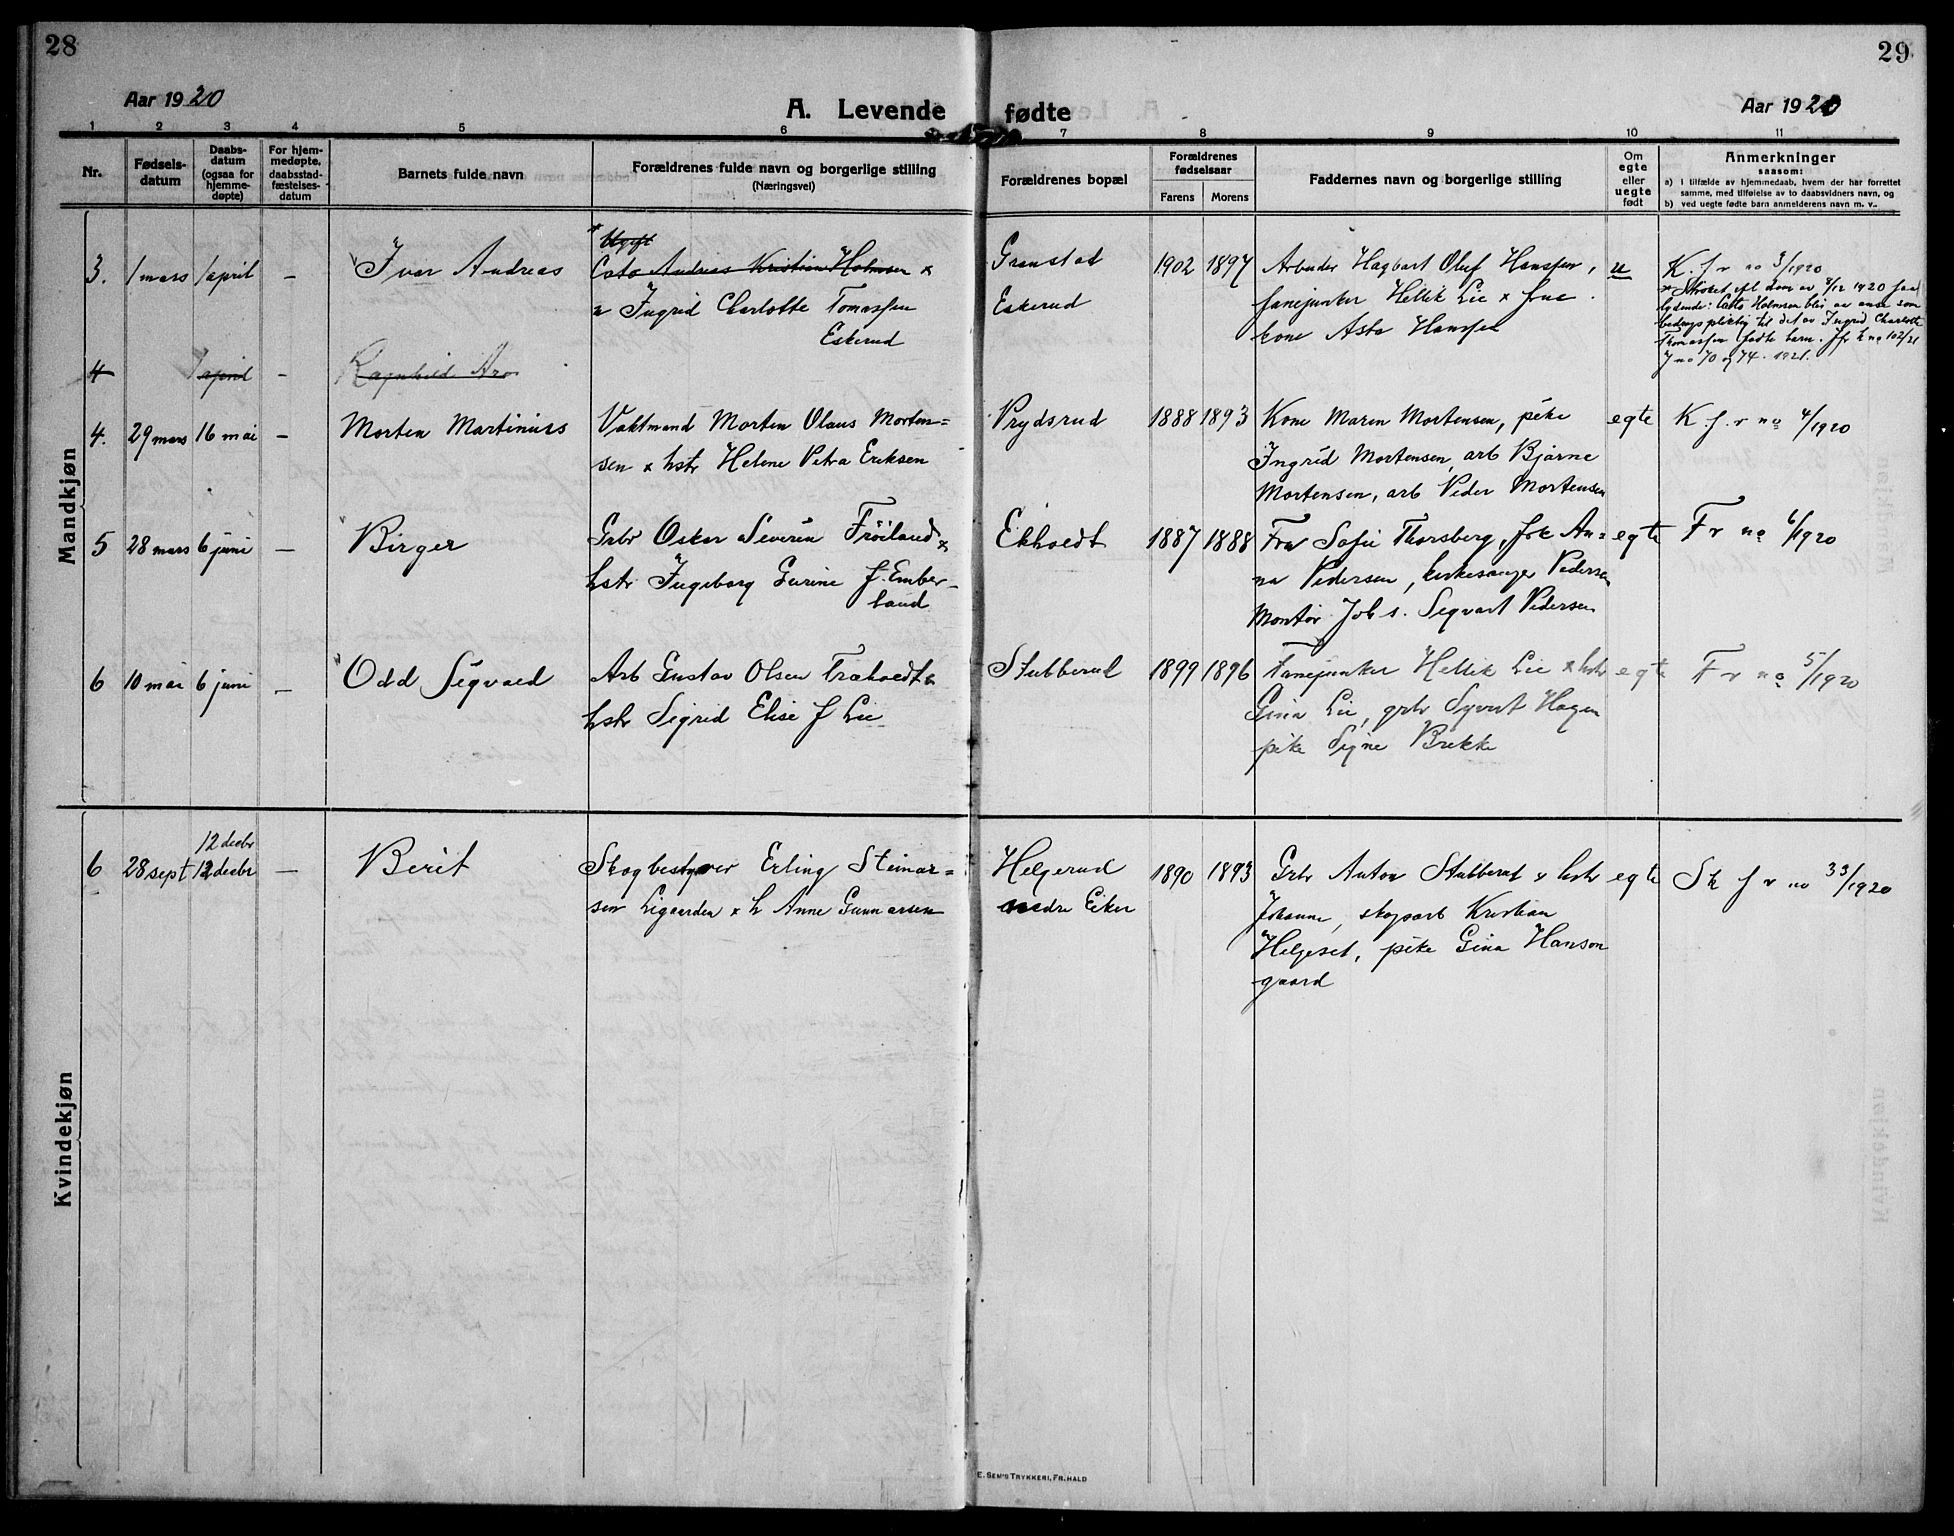 28
29
Aar 1920
A. Levende fødte
Aar 1920
1 2 3 4 5 6 7 8 9 10 11
Nr.
Fødsels-
datum
Daabs-
datum
(ogsaa for
hjemme-
døpte)
For hjem-
medøpte,
daabsstad-
fæstelses-
datum
Barnets fulde navn
Forældrenes fulde navn og borgerlige stilling
(Næringsvei)
Forældrenes bopæl
Forældrenes
fødselsaar
Farens Morens
Faddernes navn og borgerlige stilling
Om
egte
eller
uegte
født
Anmerkninger
saasom:
a) I tilfælde av hjemmedaab, hvem der har forrettet
samme, med tilføielse av to daabsvidners navn, og
b) ved uegte fødte barn anmelderens navn m. v.
Mandkjøn
3. 1 mars 1 april – Ivar Andreas
* Ugift
Cato Andreas Kristian Holmsen x
u Ingrid Charlotte Tomassen
Eskerud
Granstad
Eskerud
1902 1897
Arbeider Hagbart Oluf Hanssen,
fanejunker Hellik Lie x frue
kone Asta Hanssen
u
K. f r no 3/1920
lydende: Cato Holmsen blir av anse som
bidragspliktig til det av Ingrid Charlotte
Thomassen fødte barn. Jfr k no 102/21
J no 70 og 74 1921.
4 april – Ragnhild
4. 29 mars 16 mai – Morten Martinius
Vaktmand Morten Olaus Morten=
sen x hstr Helene Petra Eriksen
Prydsrud
1888 1893
Kone Maren Mortensen, pike
Ingrid Mortensen, arb Bjarne
Mortensen, arb Peder Mortensen
egte
K. f. r no 4/1920
5 28 mars 6 juni – Birger
Grbr Oskar Severin Frøiland x
hstr Ingeborg Gurine f. Ember-
land
Ekholdt
1887 1888
Fru Sofie Thorsberg, frk An=
na Pedersen, kirkesanger Pedersen
Montør Joh s. Sigvart Pedersen
egte
F r no 6/1920
6 10 mai 6 juni – Odd Sigvald
Arb Gustav Olsen Træholdt x
hstr Sigrid Elise f Lie
Stubberud
1899 1896
Fanejunker Hellik Lie x hstr
Gina Lie, grbr Syvert Hagen
pike Signe Brekke
egte
F r no 5/1920
Kvindekjøn
12 decbr
6 28 sept 12 decbr – Berit
Skogbestyrer Erling Steinar=
sen Ligaarden x h Anne Gunnarsen
Helgerud
nedre Eiker
1890 1893
Grbr Anton Stubberud x hstr
Johanne, skogarb Kristian
Helgeset, pike Gina Hanson
gaard
egte
Sk f r no 33/1920
E. SEM'S TRYKKERI, FR.HALD